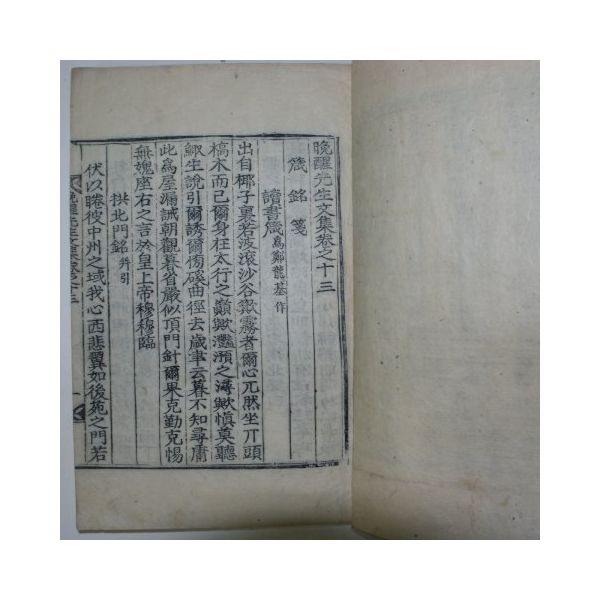 晩醒先生文集卷之十三
箴 銘 箋
讀書箴 爲鄭龍基作
出自椰子裏若波滾沙谷歟霧者爾心兀然坐丌頭
槁木而已爾身枉太行之巔歟灩澦之濤歟愼莫聽
鯫生說引爾誘爾傍磎曲徑去歲聿云暮不知尋庸
此爲屋漏誡朝觀暮省嚴似頂門針爾果克勤克惕
無媿座右之言於皇上帝穆穆臨
拱北門銘 幷引
伏以睠彼中州之域我心西悲翼如後苑之門若
晩醒先生文集卷之十三 一